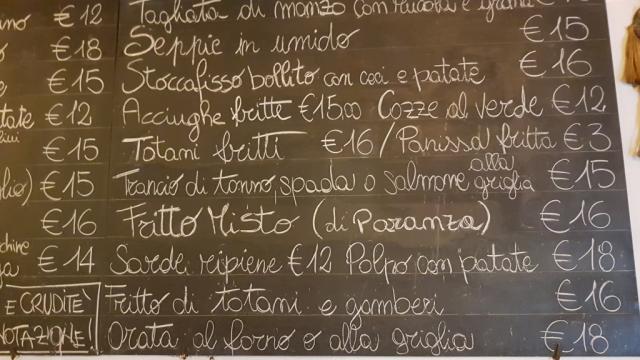 € 12 Tagliata di manzo con rucola e grana € 15
€ 18 Seppie in umido
€ 15 Stoccafisso bollito con ceci e patate € 16
€ 12 Acciughe fritte €1500 Cozze al verde € 12
€ 15 Totani fritti € 16 / Panissa fritta € 3
€ 15 Trancio di tonno, spada o salmone alla griglia € 15
€ 16 Fritto Misto (di Paranza) € 16
€ 14 Sarde ripiene € 12 Polpo con patate € 18
E CRUDITE' Fritto di totani e gamberi € 16
NOTAZIONE! Orata al forno o alla griglia € 18